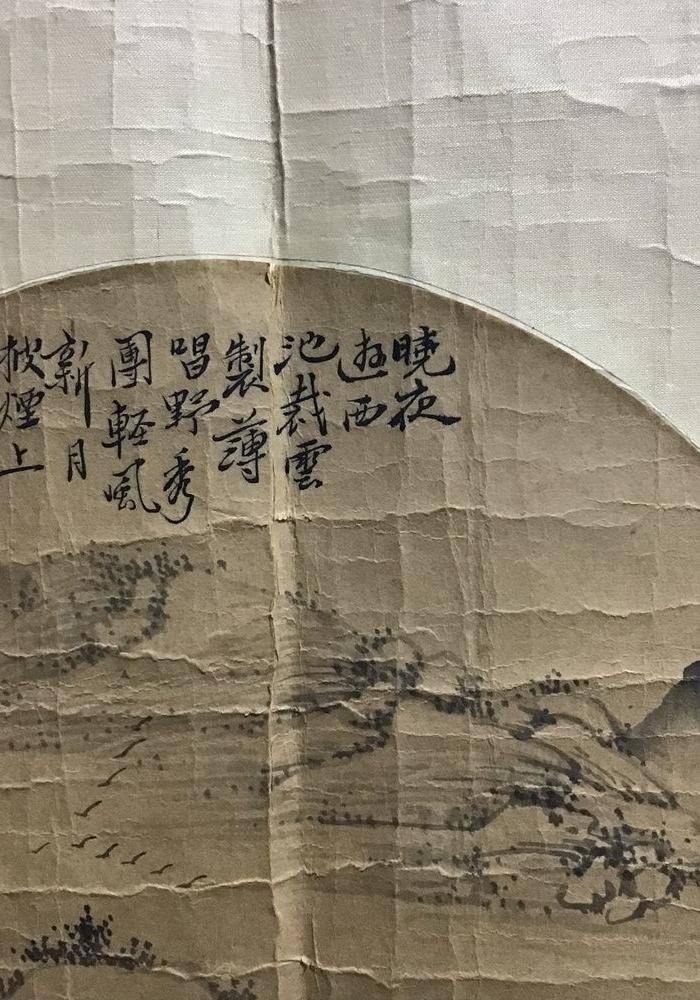 曉夜
遊西
池裁雲
製薄
唱野秀
團輕風
新月
披煙上